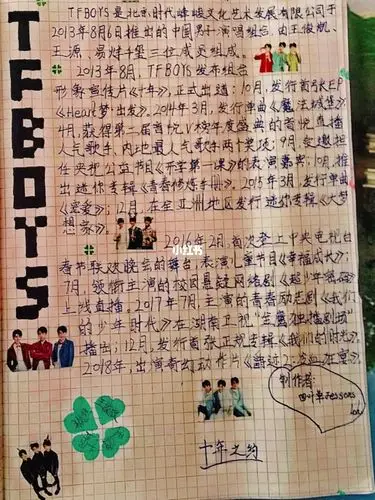 TFBOYS
TFBOYS是北京时代峰峻文化艺术发展有限公司于
2013年8月6日推出的中国男子演唱组合,由王俊凯、
王源、易烊千玺三位成员组成。
2013年8月,TFBOYS发布组合
形象宣传片《十年》,正式出道;10月,发行首张EP
《Heart梦·出发》。2014年3月,发行单曲《魔法城堡》
4月,获得第二届音悦V榜年度盛典的音悦直播
人气歌手、内地最具人气歌手两个奖项;9月,受邀担
任央视公益节目《开学第一课》的表演嘉宾;10月,推
出迷你专辑《青春修炼手册》。2015年3月,发行单曲
《宠爱》;12月,在全亚洲地区发行迷你专辑《大梦
想家》。
2016年2月,首次登上中央电视台
春节联欢晚会的舞台,表演儿童节目《幸福成长》;
7月,领衔主演的校园悬疑网络剧《超少年密码》
上线直播。2017年7月,主演的青春励志剧《我们
的少年时代》在湖南卫视
播出;12月,发行首张正规专辑《我们的时光》。
2018年,出演奇幻动作片
小红书
制作者:
四叶草
十年之约